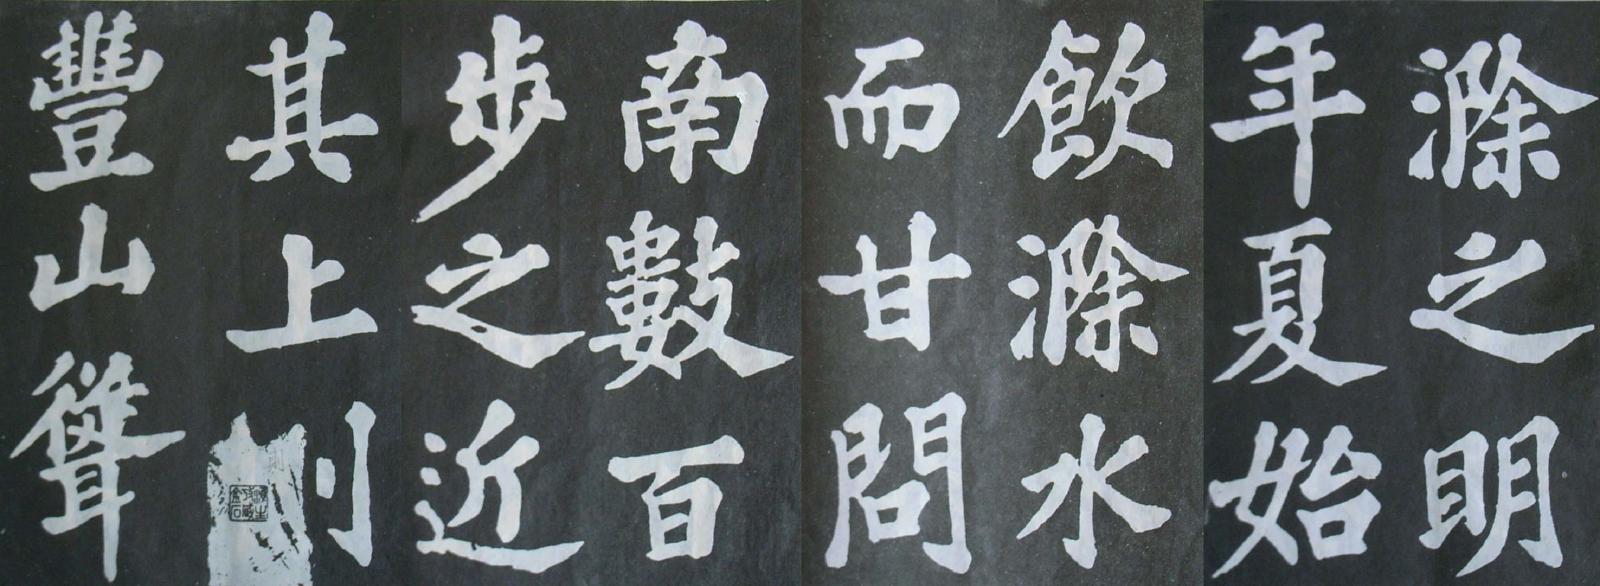 滁之明
年夏始
飲滁水
而甘問
南數百
步之近
其上
豐山聳